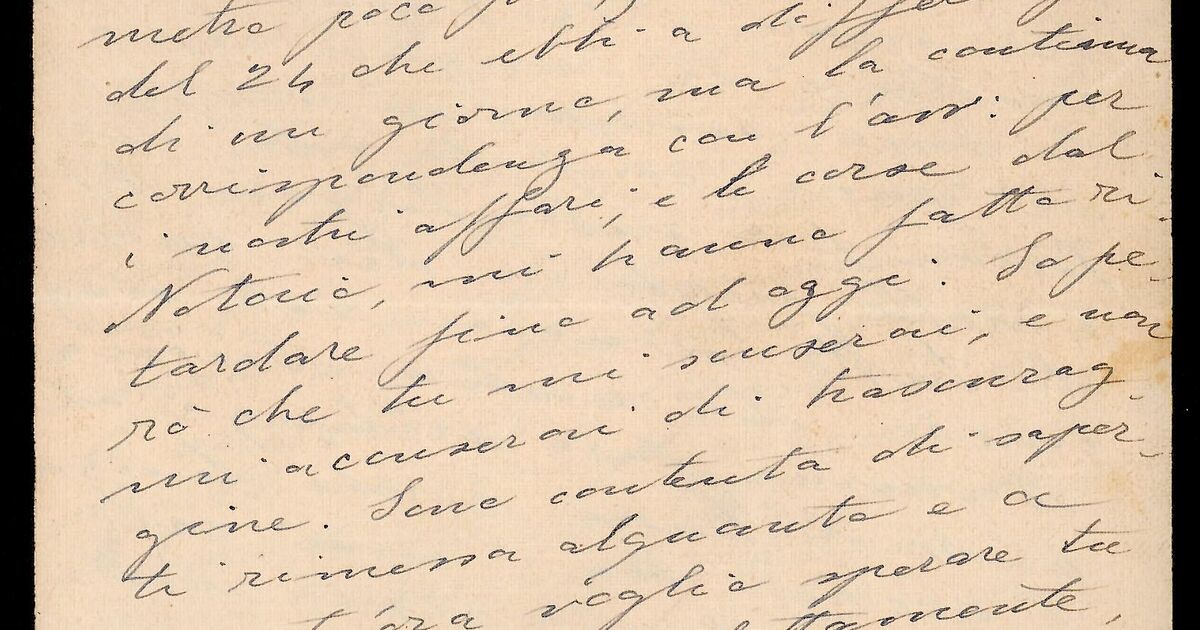 metro poco
del 24 che ebbi a differ
di un giorno, ma la continua
corrispondenza con l'avv: per
i nostri affari, e le corse dal
Notaio, mi hanno fatto ri-
tardare fino ad oggi. So pe-
rò che tu mi scuserai, e non
mi accuserai di trascurag-
gine. Sono contenta di saper-
ti rimessa alquanto e a
t'ora voglio sperare tu
ttamente,